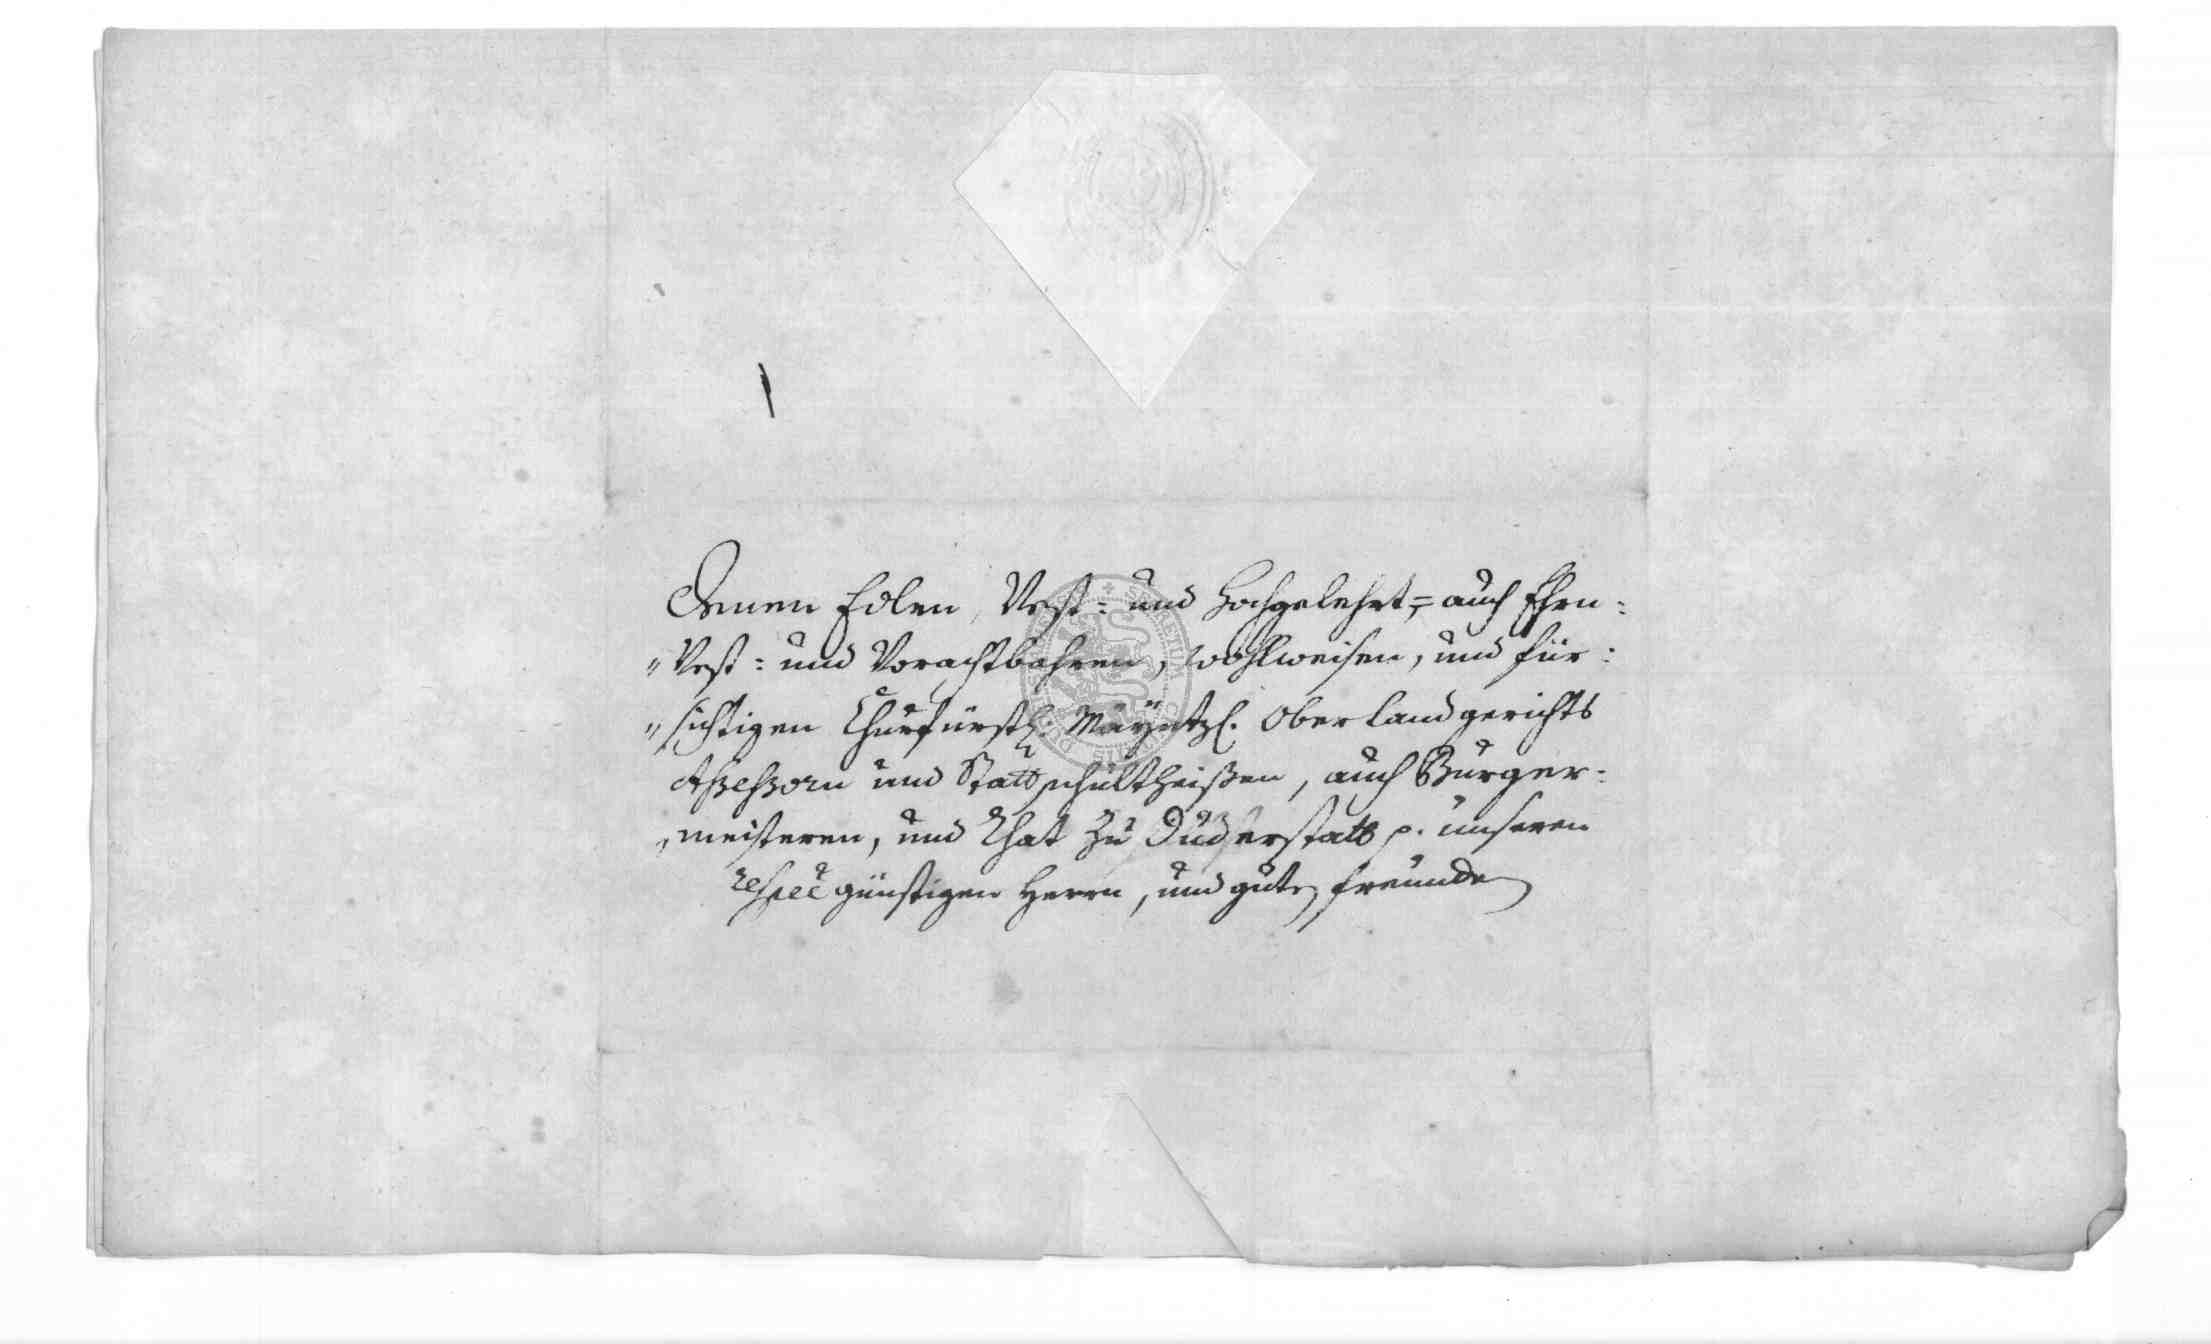 Denen Edlen, Vest= und Hochgelehrt,= auch Ehrn=
"Vest= und Vorachtbahren, Wohlweisen, und für=
"sichtigen Churfürstl. Mayntzl. Oberlandgerichts
Aßeßorn und Stattschultheißen, auch Bürger=
meisteren, und Rhat zu Duderstatt p. unseren
respec günstigen Herrn, und gute Freunde